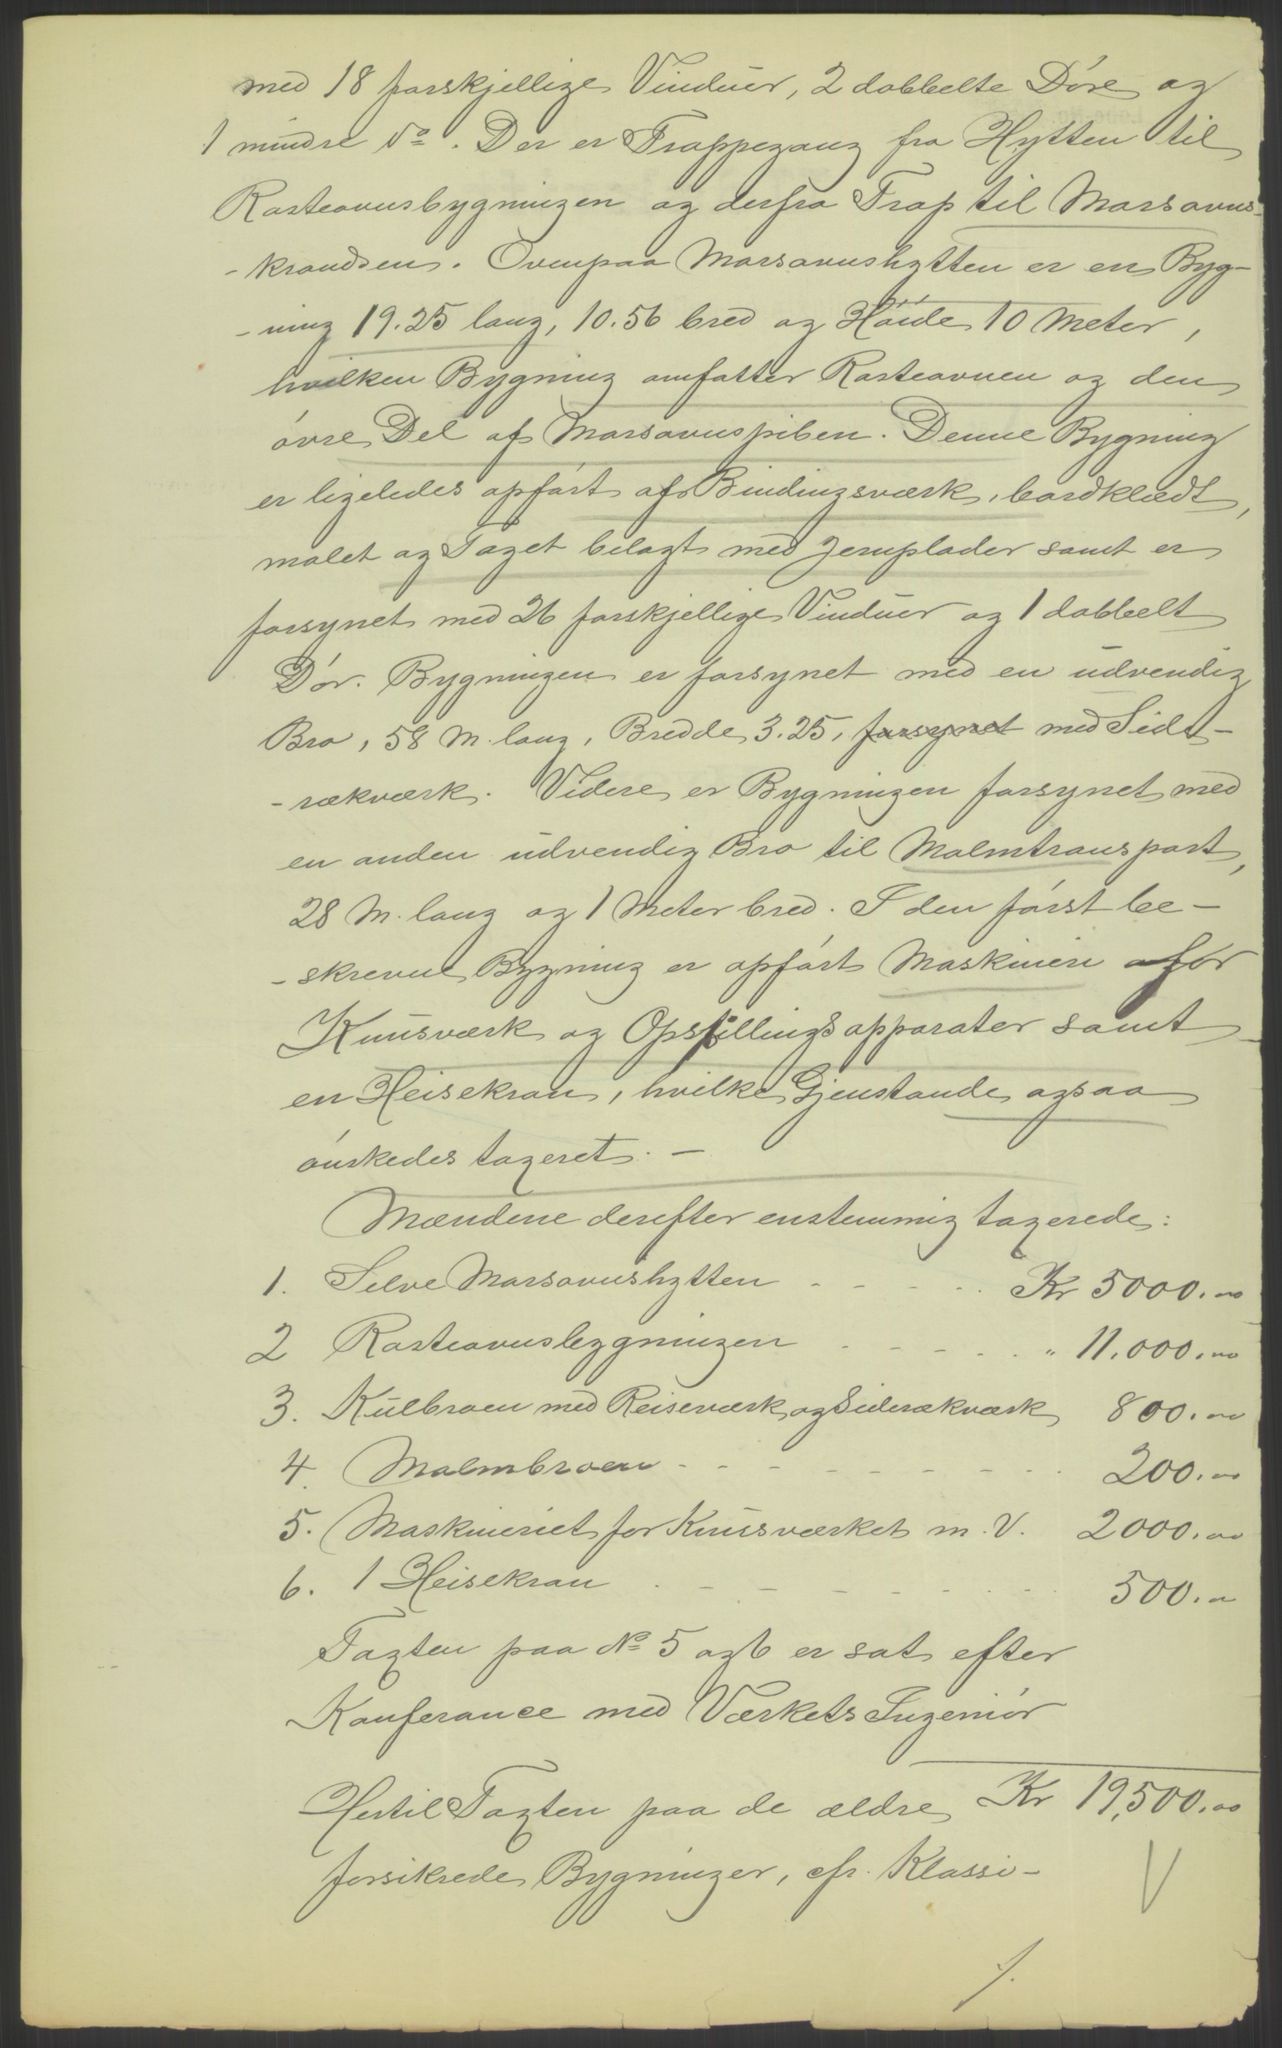 med 18 forskjellige Vinduer, 2 dobbelte Döre og
1 mindre do. Der er Trappegang fra Hytten til
Rosteovnsbygningen og derfra Trap til Masovns-
-krandsen. Ovenpaa Masovnshytten er en Byg-
-ning 19.25 lang, 10.56 bred og Höide 10 Meter,
hvilken Bygning omfatter Rosteovnen og den
övre Del af Masovnspiben. Denne Bygning
er ligeledes opfört af Bindingsværk, bordklædt,
malet og Taget belagt med Jernplader samt er
forsynet med 26 forskjellige Vinduer og 1 dobbelt
Dör. Bygningen er forsynet med en udvendig
Bro, 58 M. lang, Bredde 3.25, forsynet med Side-
-rækværk. Videre er Bygningen forsynet med
en anden udvendig Bro til Malmtransport,
28 M. lang og 1 Meter bred. I den först be-
-skrevne Bygning er opfört Maskineri for
Knusværk og Opstillingsapparater samt
en Heisekran, hvilke Gjenstande ogsaa
önskedes taxeret. -
Mændene derefter enstemmig taxerede:
1. Selve Masovnshytten - - - - Kr 5000.00
2 Rosteovnsbygningen - - - - - " 11.000.00
3. Kulbroen med Reiseværk og Siderækværk 800.00
4. Malmbroen - - - - - - - - - 200.00
5. Maskineriet for Knusværket m. V. 2000.00
6. 1 Heisekran - - - - - - - - 500.00
Taxten paa No 5 og 6 er sat efter
Konferance med Værkets Ingeniör
Kr 19,500.00
Hertil Taxten paa de ældre
forsikrede Bygninger, cfr. Klassi-
V
./.